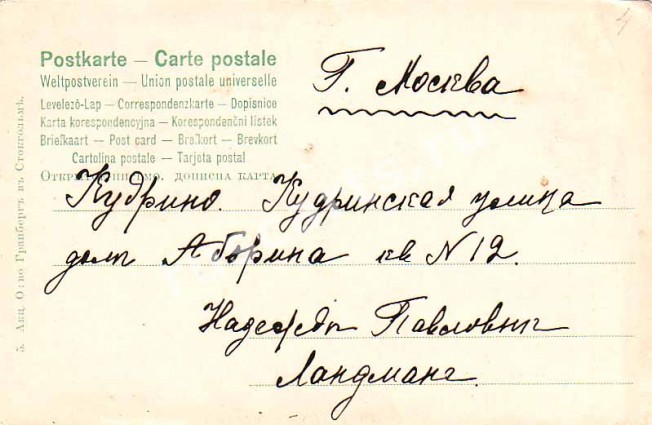 4
Postkarte — Carte postale
Weltpostverein — Union postale universelle
Levelező-Lap — Correspondenzkarte — Dopisnice
Karta korespondencyjna — Korespondenční lístek
Briefkaart — Post card — Brefkort — Brevkort
Cartolina postale — Tarjeta postal
Открытое письмо. дописна карта
Г. Москва
Кудрино. Кудринская улица
домъ Аборина кв N 12.
Надеждѣ Павловнѣ
Ландманъ.
5. Акц. О:во Гранбергъ въ Стокгольмѣ.